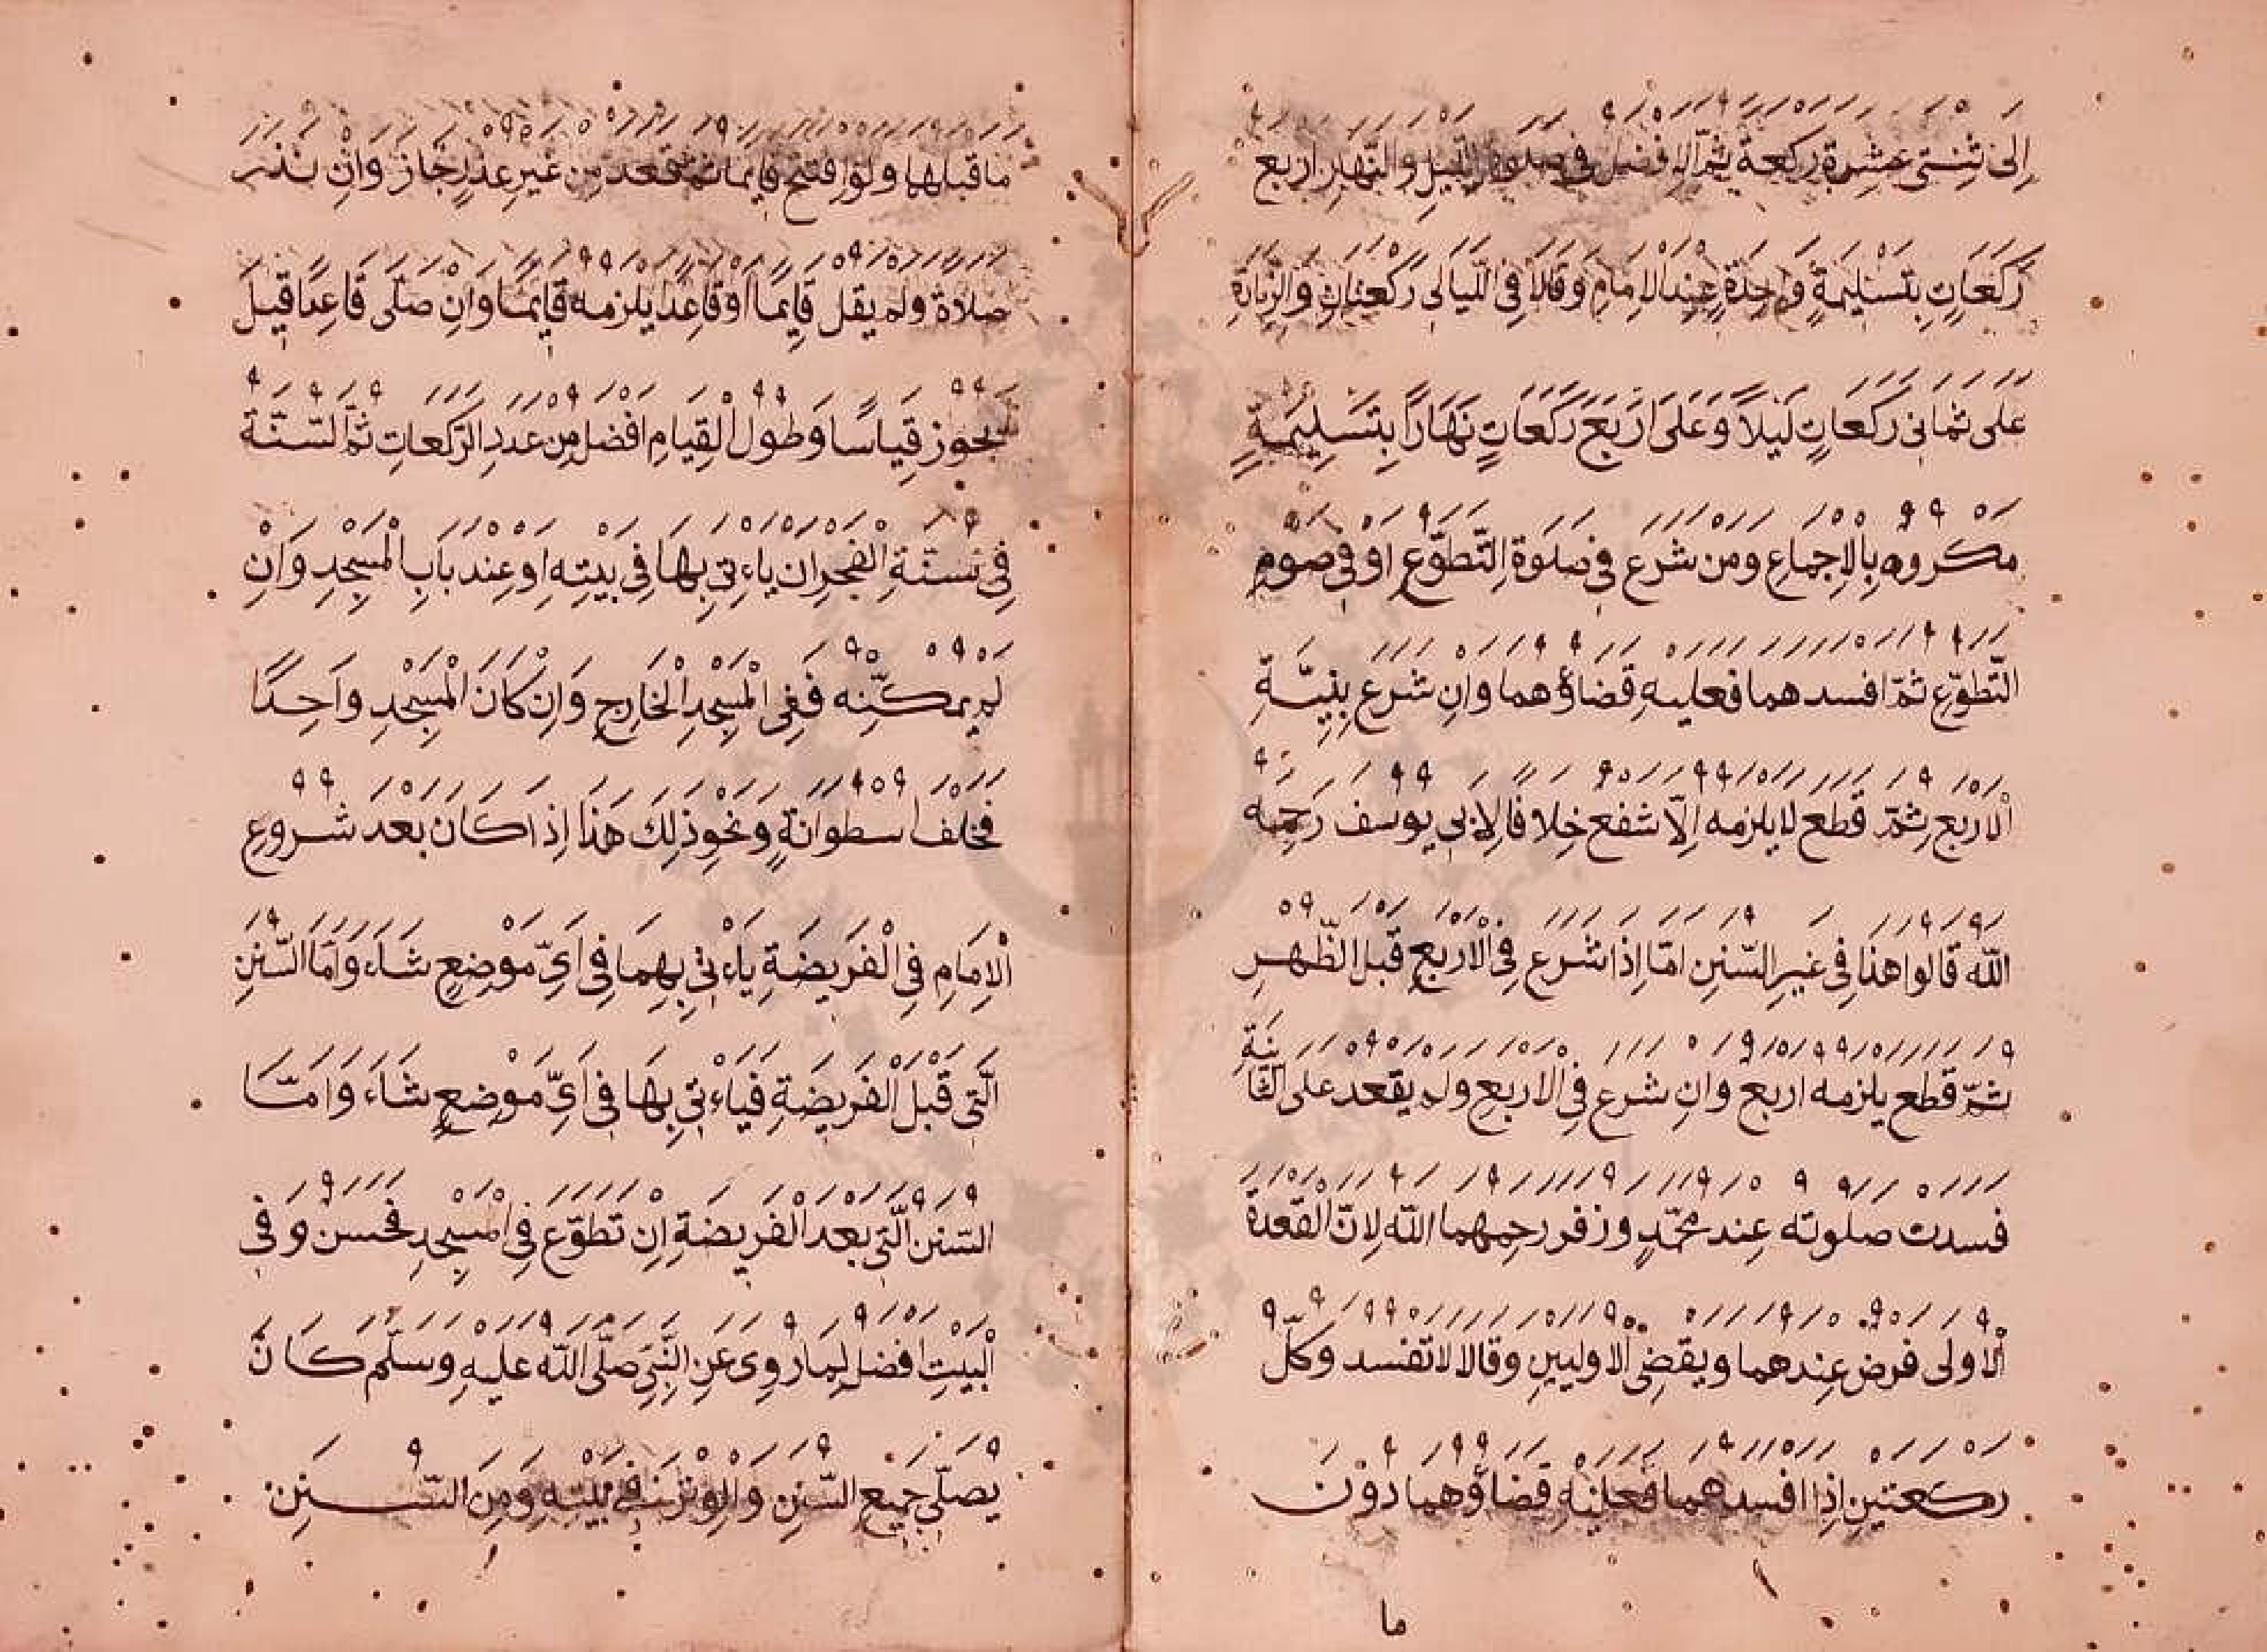 اِلىٰ ثِنْتَىْ عَشِرَةَ رَكْعَةً ثُمَّ الافضل فى صلوة الليل والنّهار اربع
رَكَعَاتٍ بِتَسْلِيمَةٍ وَاحِدَةٍ عِنْدَ الْاِمَامِ وَقَالَا فِى اللَّيَالِى رَكْعَتَانِ وَالزِّيَادَةِ
عَلَى ثَمَانِى رَكَعَاتٍ لَيْلًا وَعَلَى اَرْبَعَ رَكَعَاتٍ نَهَارًا بِتَسْلِيمَةٍ
مَكْرُوهٌ بِالْاِجْمَاعِ وَمَنْ شَرَعَ فِى صَلٰوةِ التَّطَوُّعِ اَوْ فِى صَوْمِ
التَّطَوُّعِ ثُمَّ اَفْسَدَهُمَا فَعَلَيْهِ قَضَاؤُهُمَا وَاِنْ شَرَعَ بِنِيَّةِ
الْاَرْبَعِ ثُمَّ قَطَعَ لَا يَلْزَمُهُ اِلَّا شَفْعٌ خِلَافًا لِاَبِى يُوسُفَ رَحِمَهُ
اللّٰهُ قَالُوا هَذَا فِى غَيْرِ السُّنَنِ اَمَّا اِذَا شَرَعَ فِى الْاَرْبَعِ قَبْلَ الظُّهْرِ
ثُمَّ قَطَعَ يَلْزَمُهُ اَرْبَعٌ وَاِنْ شَرَعَ فِى الْاَرْبَعِ وَلَمْ يَقْعُدْ عَلَى الثَّانِيَةِ
فَسَدَتْ صَلٰوتُهُ عِنْدَ مُحَمَّدٍ وَزُفَرَ رَحِمَهُمَا اللّٰهُ لِاَنَّ الْقَعْدَةَ
الْاُولَى فَرْضٌ عِنْدَهُمَا وَيَقْضِى الْاُولَيَيْنِ وَقَالَا لَا تَفْسُدُ وَكُلُّ
رَكْعَتَيْنِ اِذَا اَفْسَدَهُمَا فَعَلَيْهِ قَضَاؤُهُمَا دُوْنَ
ما
مَا قَبْلَهَا وَلَوْ افْتَتَحَ قَائِمًا ثم قعد من غَيْرِ عُذْرٍ جَازَ وَاِنْ نَذَرَ
صَلَاةً وَلَمْ يَقُلْ قَائِمًا اَوْ قَاعِدًا يَلْزَمُهُ قَائِمًا وَاِنْ صَلَّى قَاعِدًا قِيلَ
يَجُوزُ قِيَاسًا وَطُولُ الْقِيَامِ اَفْضَلُ مِنْ عَدَدِ الرَّكَعَاتِ ثُمَّ السُّنَّةُ
فِى سُنَّةِ الْفَجْرِ اَنْ يَاءْتِىَ بِهَا فِى بَيْتِهِ اَوْ عِنْدَ بَابِ الْمَسْجِدِ وَاِنْ
لَمْ يُمْكِنْهُ فَفِى الْمَسْجِدِ الْخَارِجِ وَاِنْ كَانَ الْمَسْجِدِ وَاَحِدًا
فَخَلْفَ اُسْطُوَانَةٍ وَنَحْوِ ذَلِكَ هَذَا اِذَا كَانَ بَعْدَ شُرُوعِ
الْاِمَامِ فِى الْفَرِيضَةِ يَاءْتِى بِهِمَا فِى اَىِّ مَوْضِعٍ شَاءَ وَاَمَّا السُّنَنِ
الَّتِى قَبْلَ الْفَرِيضَةِ فَيَاءْتِى بِهَا فِى اَىِّ مَوْضِعٍ شَاءَ وَاَمَّا
السُّنَنُ الَّتِى بَعْدَ الْفَرِيضَةِ اِنْ تَطَوَّعَ فِى الْمَسْجِدِ فَحَسَنٌ وَفِى
الْبَيْتِ اَفْضَلُ لِمَا رُوِىَ عَنِ النَّبِىِّ صَلَّى اللّٰهُ عَلَيْهِ وَسَلَّمَ كَانَ
يُصَلِّى جَمِيعَ السُّنَنِ وَالْوِتْرَ فِى بَيْتِهِ وَمِنَ السُّنَنِ